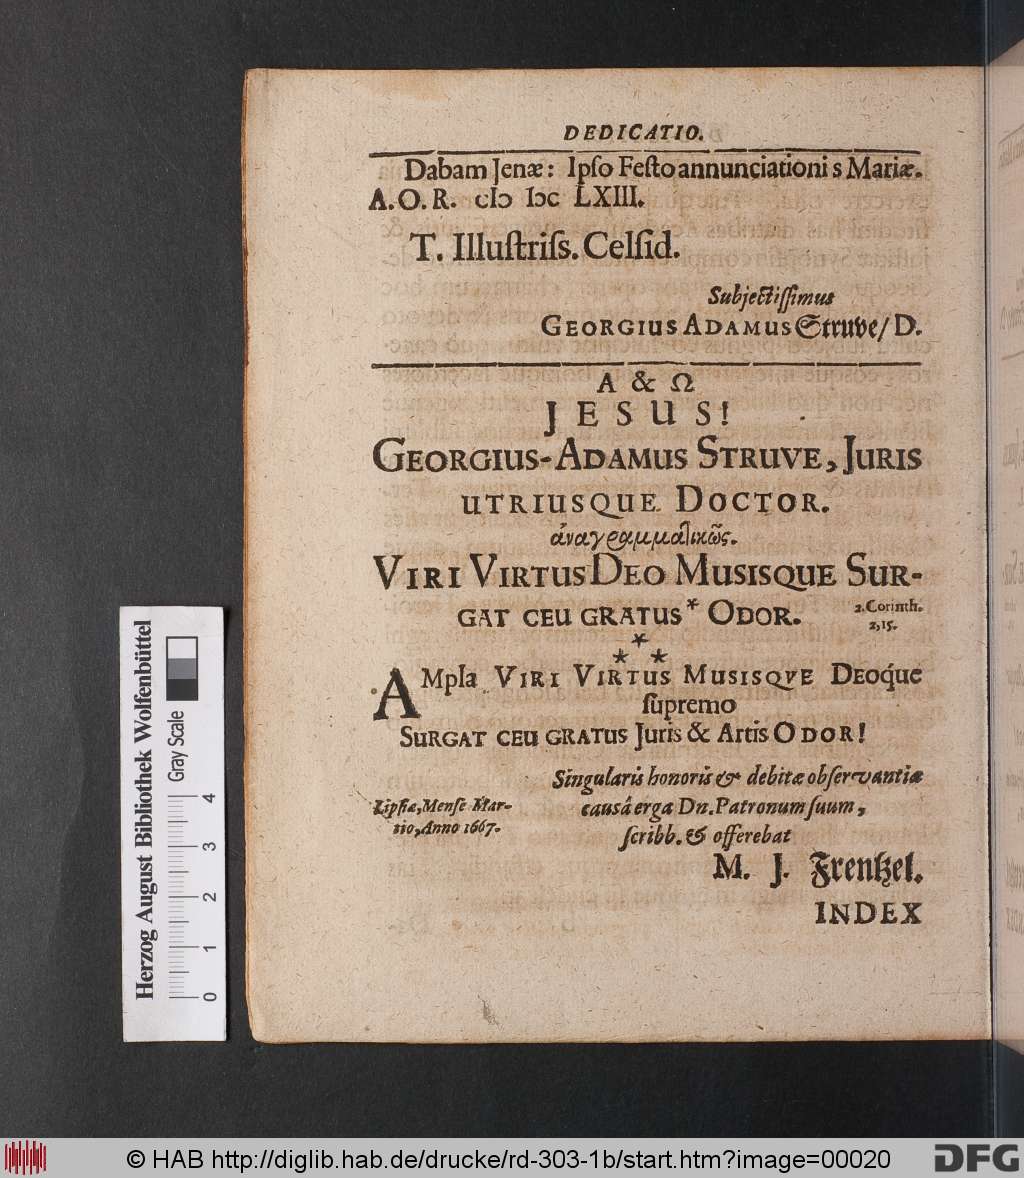 DEDICATIO.
Dabam Jenæ: Ipſo Feſto annunciationi s Mariæ.
A. O. R. cIↄ Iↄc LXIII.
T. Illuſtriſs. Celſid.
Subjectiſſimus
GEORGIUS ADAMUS Struve/ D.
A & Ω
JESUS!
GEORGIUS-ADAMUS STRUVE, JURIS
UTRIUSQUE DOCTOR.
ἀναγραμμαλικῶς.
VIRI VIRTUS DEO MUSISQUE SUR-
GAT CEU GRATUS * ODOR. 2. Corinth.
2, 15.
*
* *
AMpla VIRI VIRTUS MUSISQVE DEOque
ſupremo
SURGAT CEU GRATUS Juris & Artis ODOR!
Singularis honoris & debitæ obſervantiæ
cauſâ erga Dn. Patronum ſuum,
ſcribb. & offerebat
Lipſiæ, Menſe Mar-
tio, Anno 1667.
M. J. Frentzel.
INDEX
Herzog August Bibliothek Wolfenbüttel
Gray Scale
0 1 2 3 4
© HAB http://diglib.hab.de/drucke/rd-303-1b/start.htm?image=00020
DFG